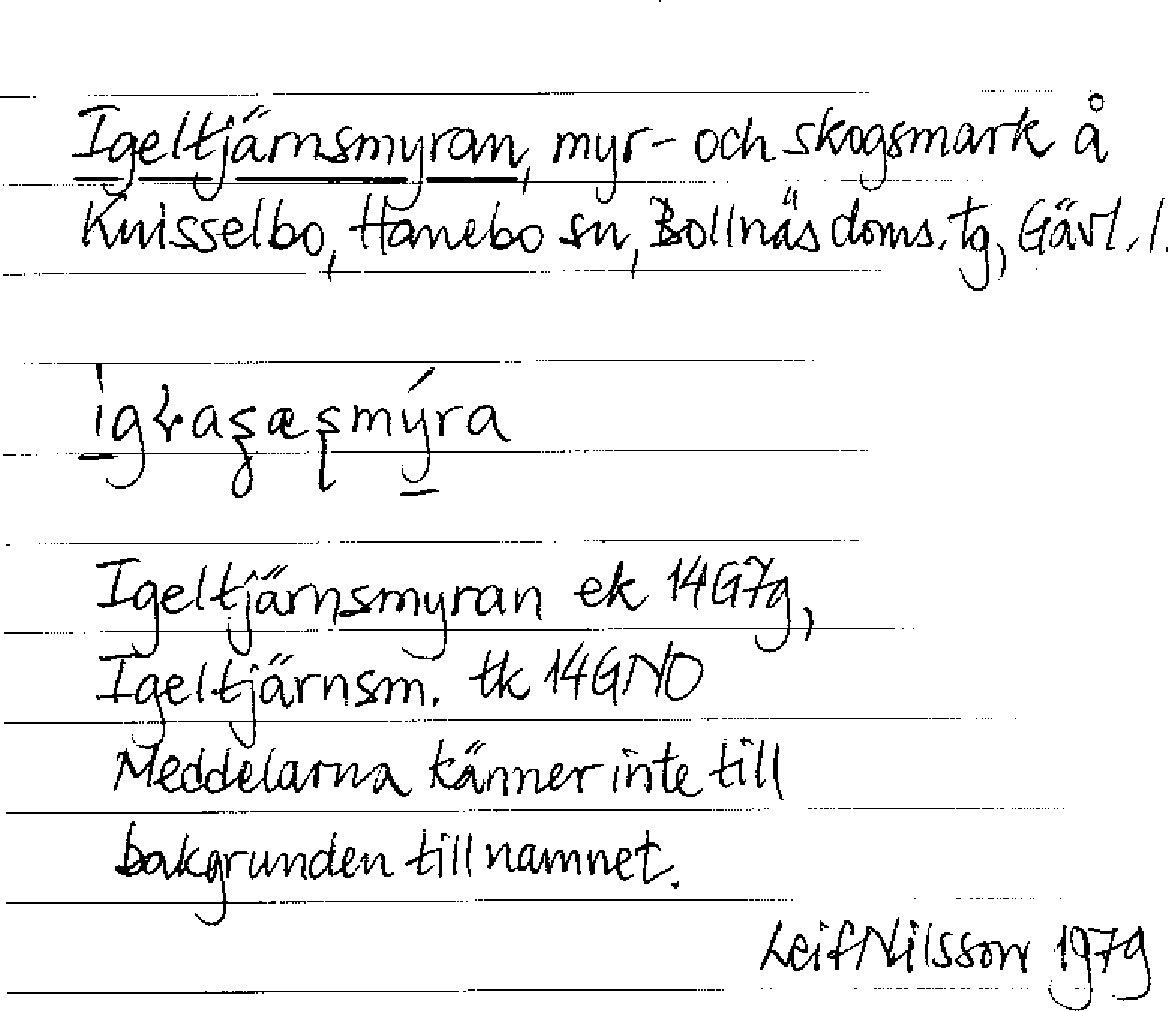 Igeltjärnsmyran, myr- och skogsmark å
Knisselbo, Hanebo sn, Bollnäs doms. tg, Gävl. l.
Igeltjärnsmyran ek 14G7g,
Igeltjärnsm. tk 14GNO
Meddelarna känner inte till
bakgrunden till namnet.
Leif Nilsson 1979